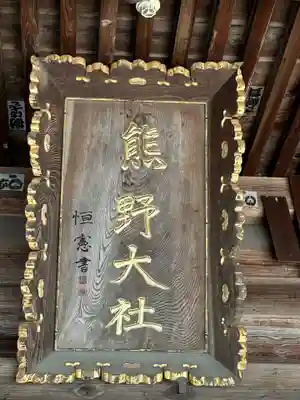 熊野大社
恒憲書